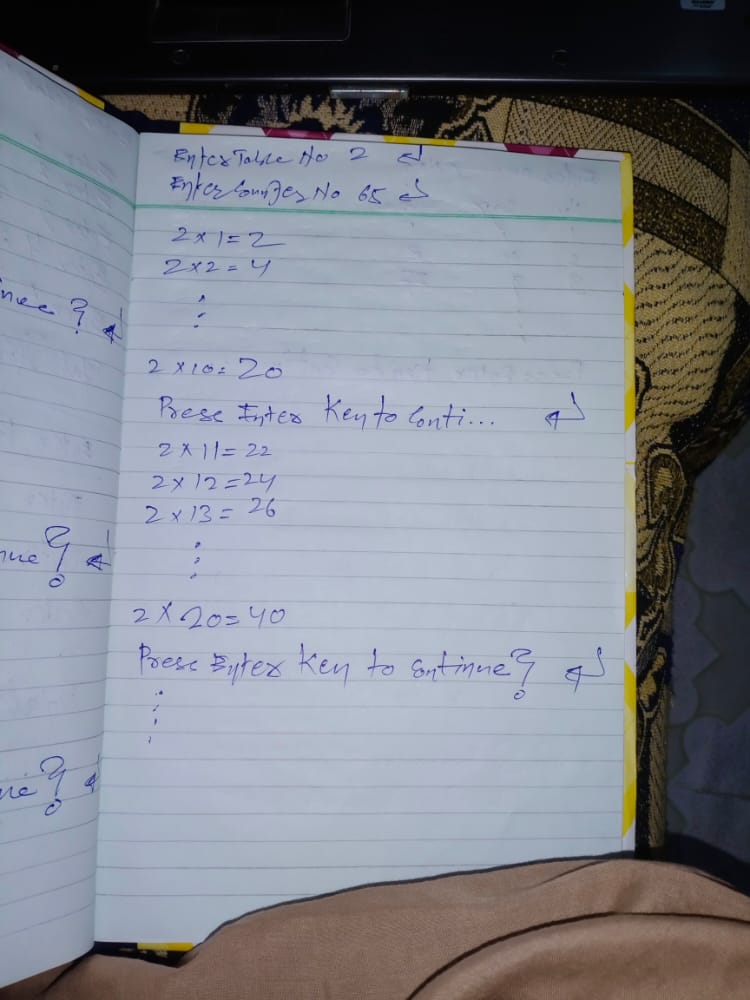 nue ?
nue ?
nue ?
Enter Table No 2 ↵
Enter Counter No 65 ↵
2 × 1 = 2
2 × 2 = 4
⋮
2 × 10 = 20
Press Enter Key to Conti... ↵
2 × 11 = 22
2 × 12 = 24
2 × 13 = 26
⋮
2 × 20 = 40
Press Enter Key to Continue? ↵
⋮